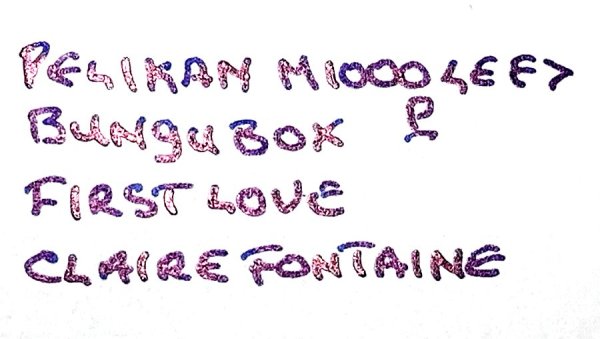 PELIKAN M1000 <EF>
BUNGUBOX
FIRST LOVE
CLAIREFONTAINE